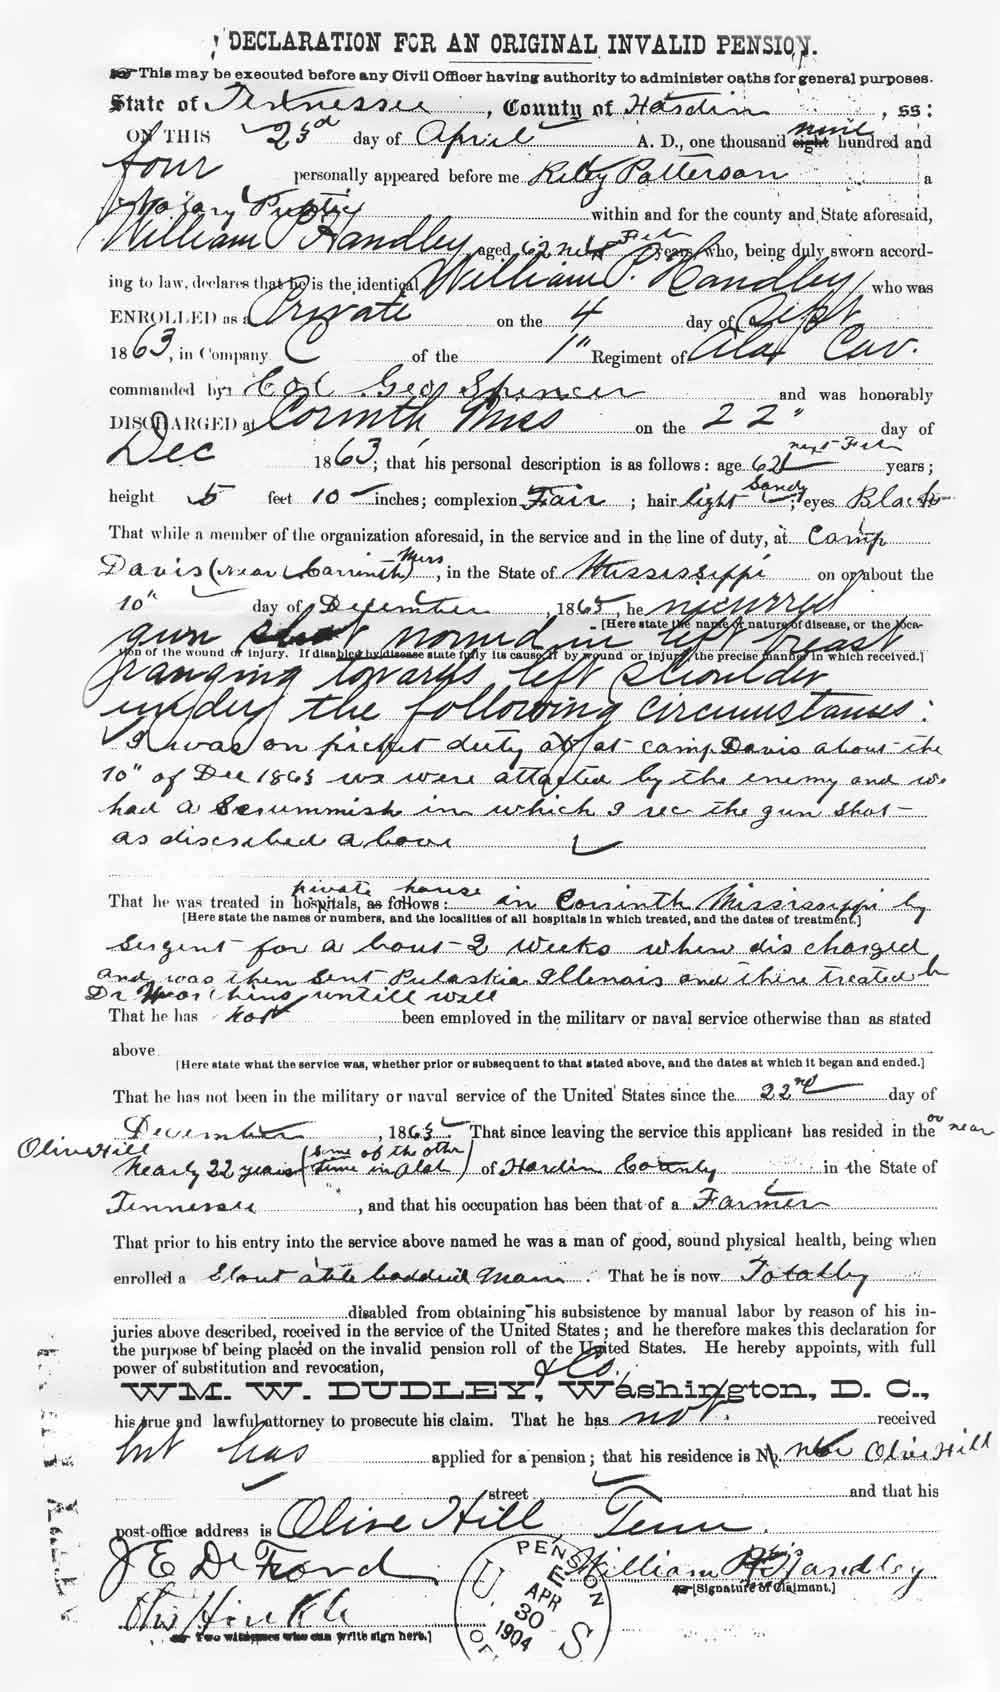 DECLARATION FOR AN ORIGINAL INVALID PENSION.
This may be executed before any Civil Officer having authority to administer oaths for general purposes.
State of Tennessee, County of Hardin, ss:
ON THIS 23rd day of April A. D., one thousand eight nine hundred and
four personally appeared before me Patterson a
Notary Public within and for the county and State aforesaid,
William P Handley aged 62 next Feb years, who, being duly sworn accord-
ing to law, declares that he is the identical William P. Handley who was
ENROLLED as a Private on the 4 day of Sept
1863, in Company C of the 1" Regiment of Ala Cav.
commanded by Col Geo Spencer and was honorably
DISCHARGED at Corinth Miss on the 22" day of
Dec 1863; that his personal description is as follows: age 62 next Feb years;
height 5 feet 10 inches; complexion Fair; hair light Sandy; eyes Black
That while a member of the organization aforesaid, in the service and in the line of duty, at Camp
Davis (near Corrinth Miss), in the State of Mississippi on or about the
10" day of December, 1863, he
[Here state the name or nature of disease, or the loca-
gun shot wound in left breast
tion of the wound or injury. If disabled by disease state fully its cause; if by wound or injury, the precise manner in which received.]
ranging towards left shoulder
under the following circumstanses:
I was on picket duty at camp Davis about the
10" of Dec 1863 we were attacted by the enemy and we
had a Scrummish in which I rec the gun shot
as discribed above
That he was treated in hospitals, as follows: private house in Corrinth Mississippi by
[Here state the names or numbers, and the localities of all hospitals in which treated, and the dates of treatment.]
Sergent for a bout 2 weeks when discharged
and was then sent Pulaskia Illenois and there treated b
Dr untill well
That he has not been employed in the military or naval service otherwise than as stated
above
[Here state what the service was, whether prior or subsequent to that stated above, and the dates at which it began and ended.]
That he has not been in the military or naval service of the United States since the 22nd day of
December, 1863. That since leaving the service this applicant has resided in the or near
Olive Hill
nearly 22 years (some of the other time in Ala) of Hardin County in the State of
Tennessee, and that his occupation has been that of a Farmer
That prior to his entry into the service above named he was a man of good, sound physical health, being when
enrolled a Stout able boddied Man. That he is now Totally
disabled from obtaining his subsistence by manual labor by reason of his in-
juries above described, received in the service of the United States; and he therefore makes this declaration for
the purpose of being placed on the invalid pension roll of the United States. He hereby appoints, with full
power of substitution and revocation,
WM. W. DUDLEY, & Co. Washington, D. C.,
his true and lawful attorney to prosecute his claim. That he has not received
but has applied for a pension; that his residence is No. near Olive Hill
street and that his
post-office address is Olive Hill, Tenn.
J E De Ford
William P. Handley
[Signature of Claimant.]
Hinkle
Two witnesses who can write sign here.]
U. S. PENSION OF
APR
30
1904